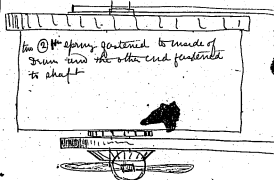 two ② spring fastened to inside of
Drum and the other end fastened
to shaft